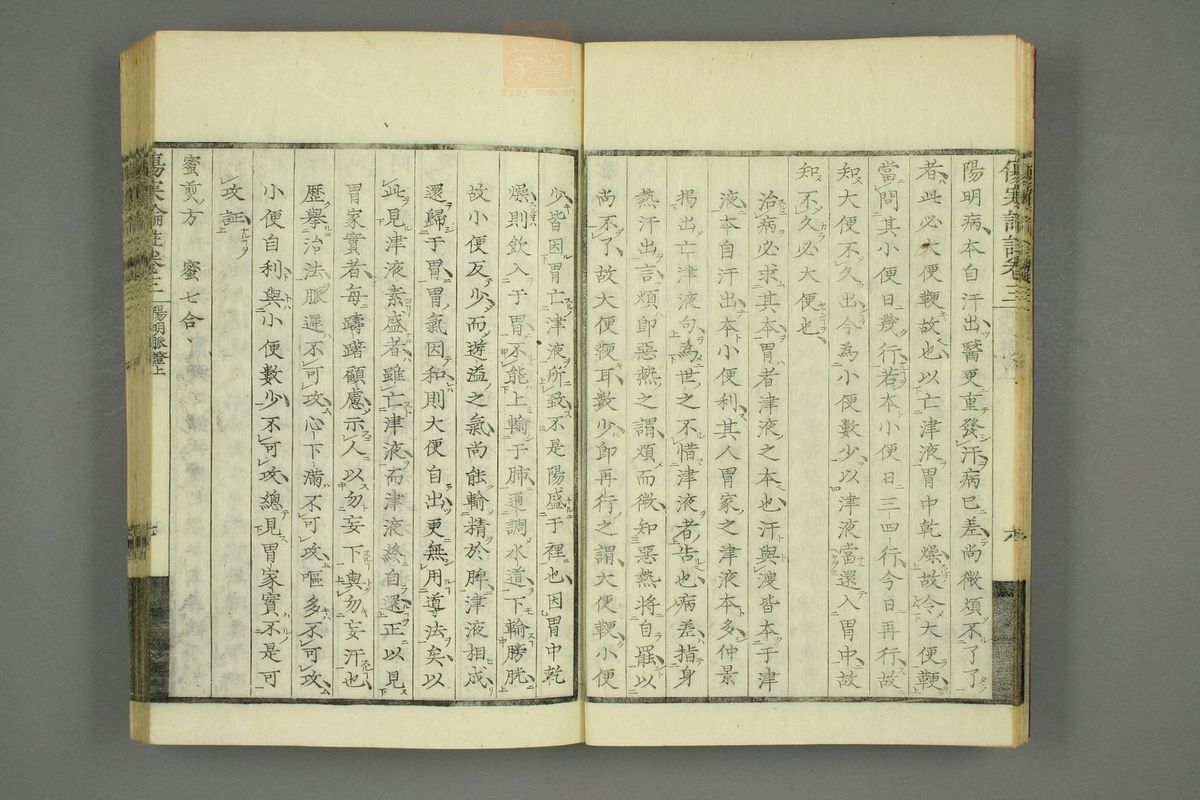 陽明病本自汗出醫更重發汗病已差尚微煩不了了
者此必大便鞕故也以亡津液胃中乾燥故令大便鞕
當問其小便日幾行若本小便日三四行今日再行故
知大便不久出今為小便數少以津液當還入胃中故
知不久必大便也
治病必求其本胃者津液之本也汗與溲皆本于津
液本自汗出本小便利其人胃家之津液本多仲景
揭出亡津液句為世之不惜津液者告也病差指身
熱汗出言煩即惡熱之謂煩而微知惡熱將自罷以
尚不了故大便鞕耳數少即再行之謂大便鞕小便
少皆因胃亡津液所致不是陽盛于裡也因胃中乾
燥則飲入于胃不能上輸于肺通調水道下輸膀胱
故小便反少而遊溢之氣尚能輸精於脾津液相成
還歸于胃胃氣因和則大便自出更無用導法矣以
此見津液素盛者雖亡津液而津液終自還正以見
胃家實者每躊躇顧慮示人以勿妄下與勿妄汗也
歷舉治法脈遲不可攻心下滿不可攻嘔多不可攻
小便自利與小便數少不可攻總見胃家實不是可
攻証
蜜煎方　蜜七合
傷寒論註卷三
陽明脈證上
七
六